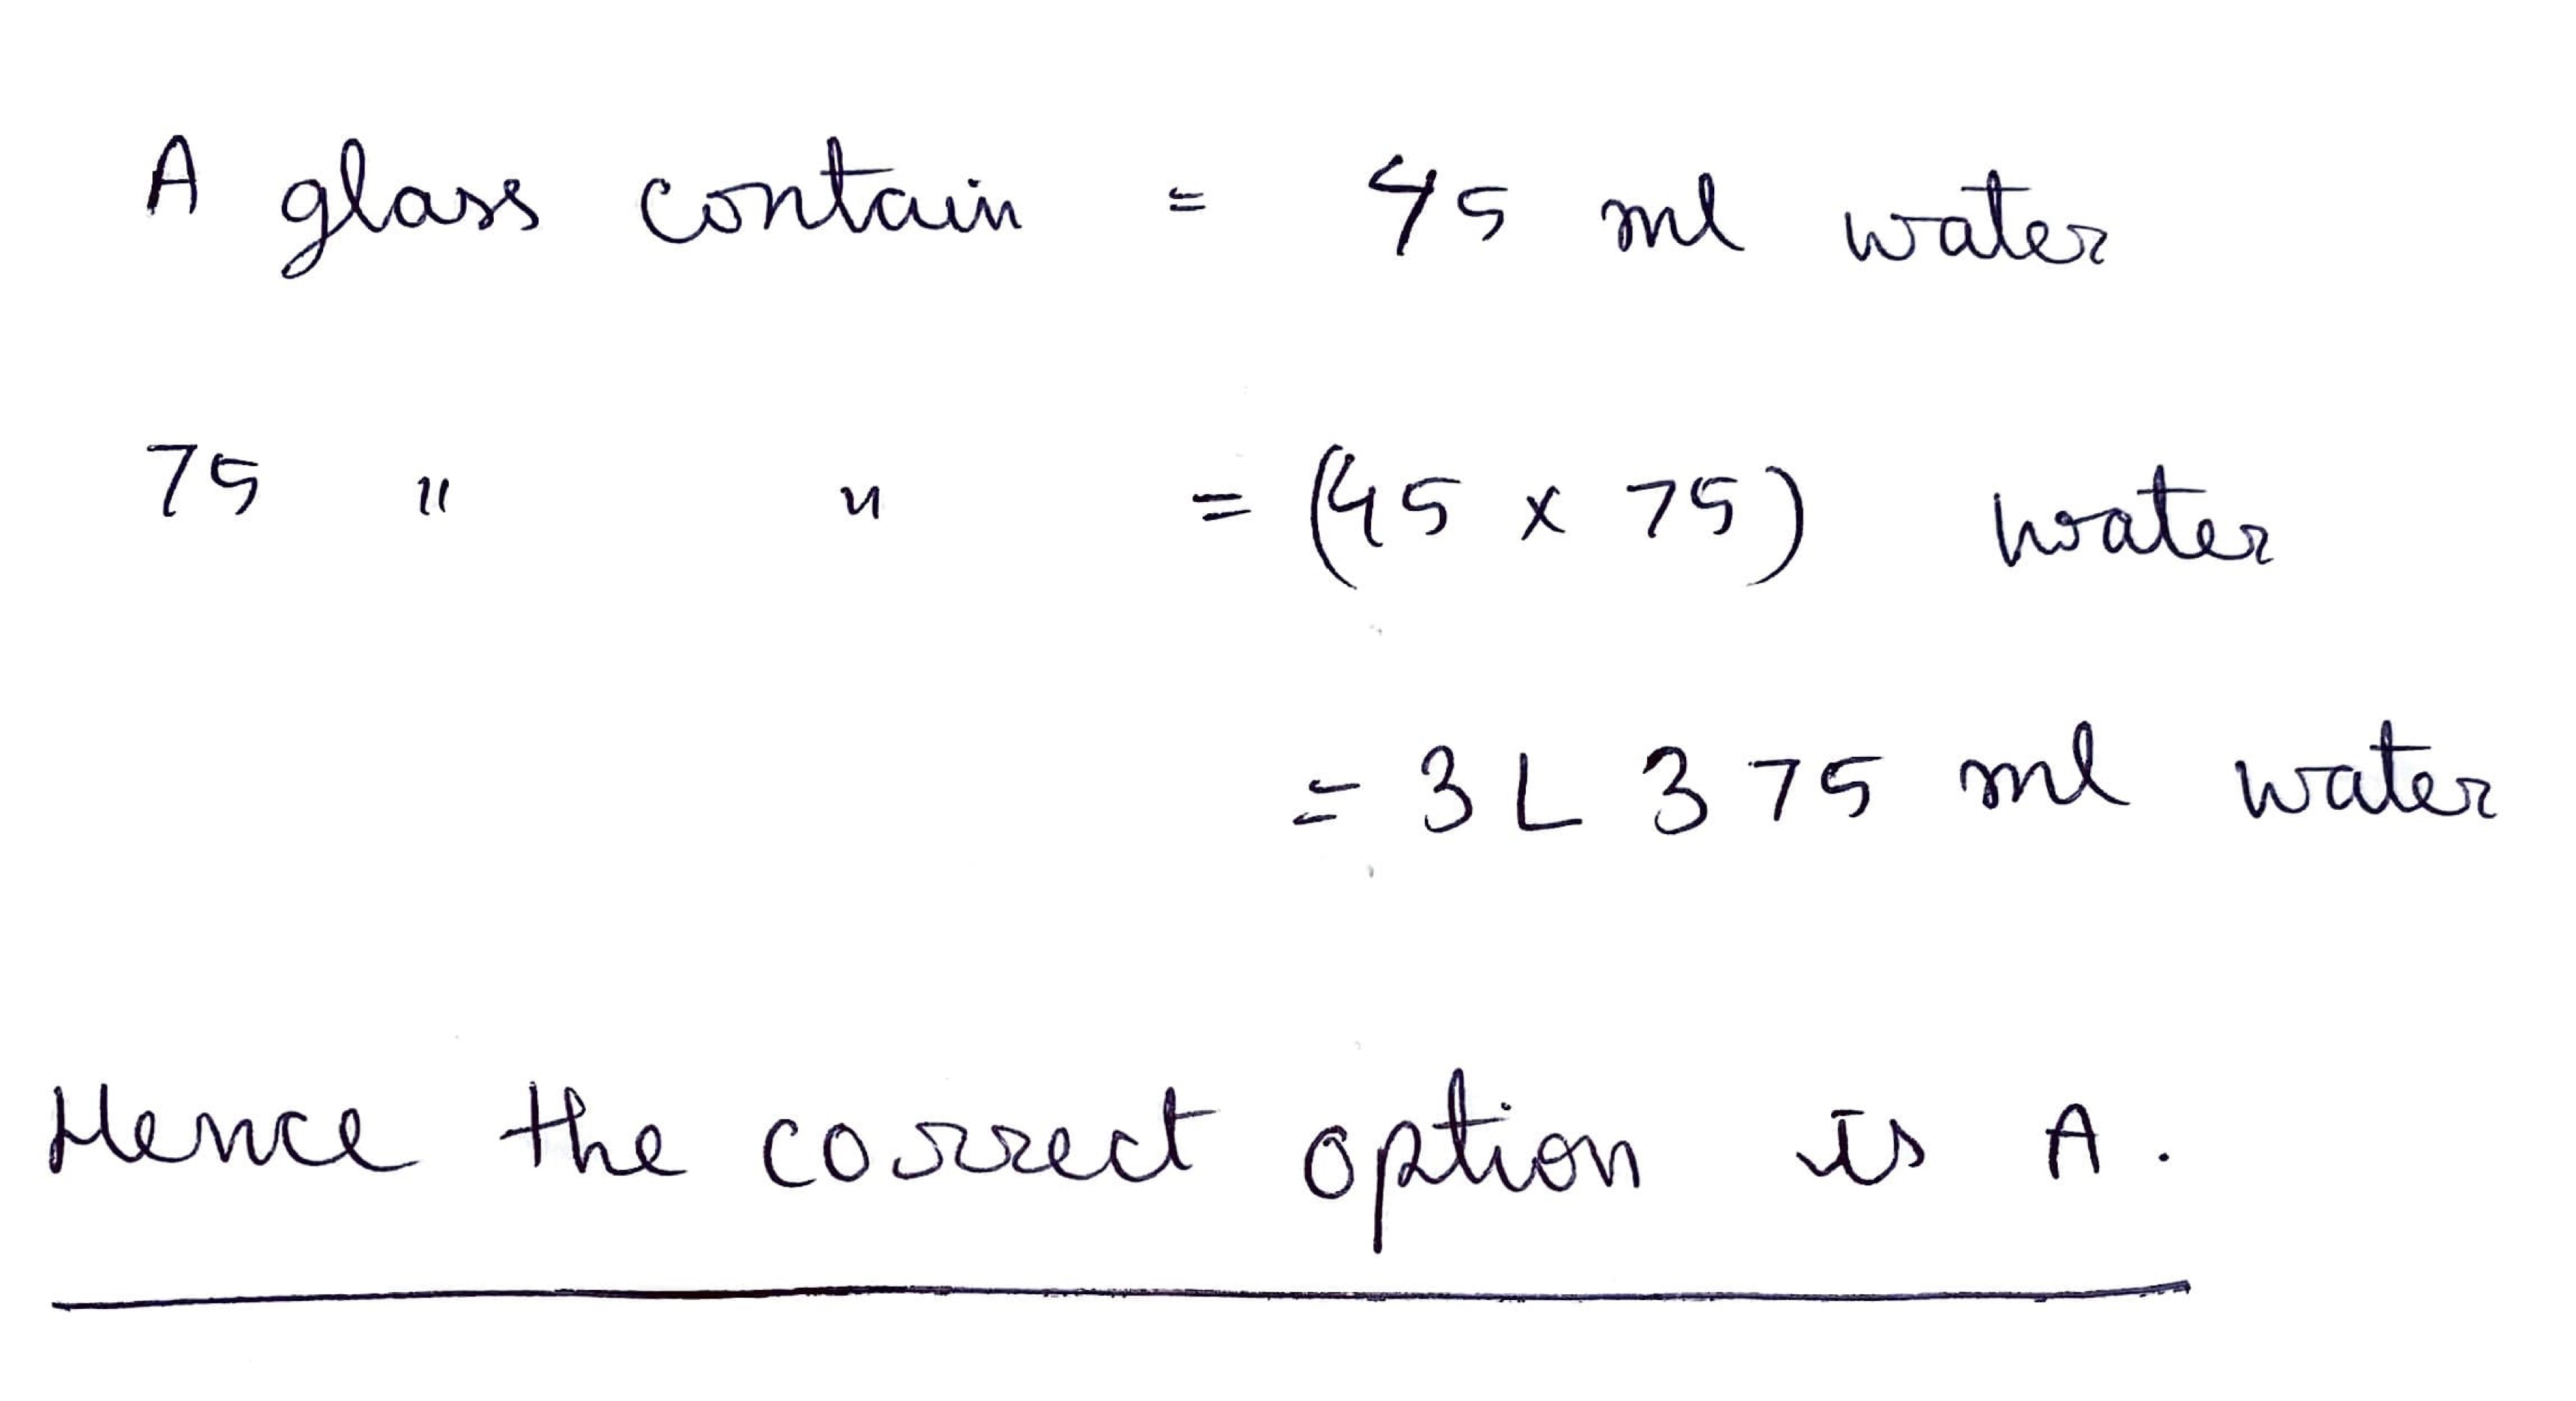 A glass contain = 45 ml water
75 " " = (45 x 75) water
= 3 L 375 ml water
Hence the correct option is A.